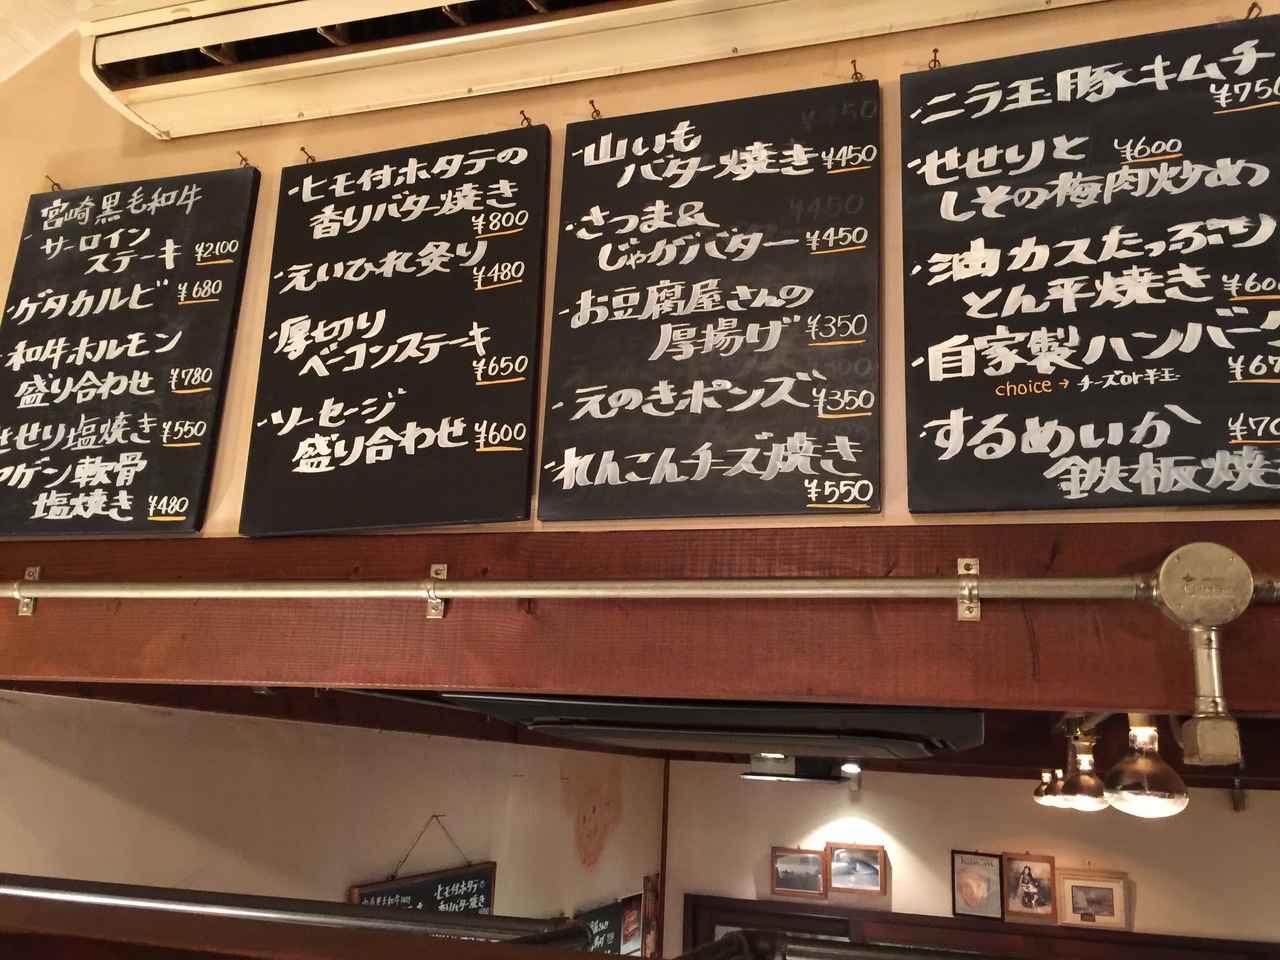 宮崎黒毛和牛
サーロイン
ステーキ ¥2100
ゲタカルビ ¥680
和牛ホルモン
盛り合わせ ¥780
せせり塩焼き ¥550
ヤゲン軟骨
塩焼き ¥480
・ヒモ付ホタテの
香りバター焼き
¥800
・えいひれ炙り
¥480
・厚切り
ベーコンステーキ
¥650
・ソーセージ
盛り合わせ ¥600
・山いも
バター焼き ¥450
・さつま&
じゃがバター ¥450
・お豆腐屋さんの
厚揚げ ¥350
・えのきポンズ ¥350
・れんこんチーズ焼き
¥550
・ニラ玉豚キムチ
¥750
・せせりと ¥600
しその梅肉炒め
・油カスたっぷり
とん平焼き ¥60
・自家製ハンバーグ
choice → チーズor半玉 ¥67
・するめいか ¥70
鉄板焼き
ヒモ付ホタテの
香りバター焼き